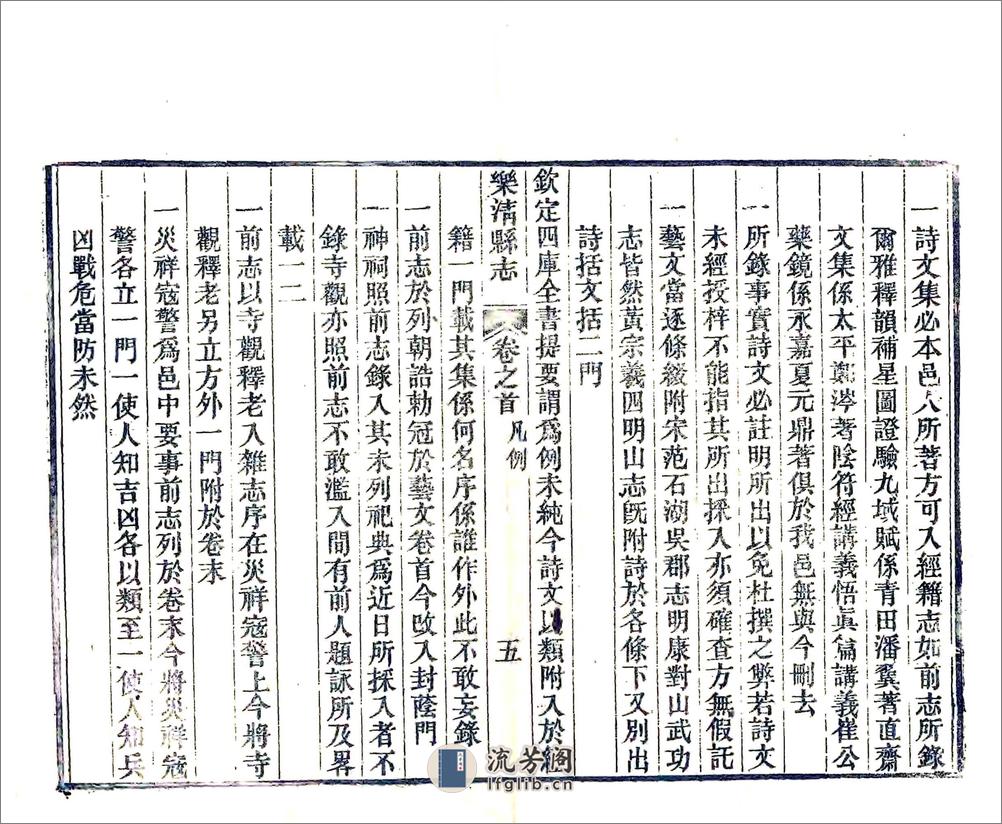 一詩文集必本邑人所著方可入經籍志如前志所錄
爾雅釋韻補星圖證驗九域賦係青田潘翼著直齋
文集係太平鄭㳞著陰符經講義悟眞篇講義崔公
藥鏡係永嘉夏元鼎著俱於我邑無與今刪去
一所錄事實詩文必註明所出以免杜撰之弊若詩文
未經授梓不能指其所出採入亦須確查方無假託
一藝文當逐條綴附宋范石湖吳郡志明康對山武功
志皆然黃宗羲四明山志旣附詩於各條下又別出
詩括文括二門
欽定四庫全書提要謂爲例未純今詩文以類附入於經
樂淸縣志 卷之首 凡例 五
籍一門載其集係何名序係誰作外此不敢妄錄
一前志於列朝誥勅冠於藝文卷首今改入封蔭門
一神祠照前志錄入其未列祀典爲近日所採入者不
錄寺觀亦照前志不敢濫入間有前人題詠所及畧
載一二
一前志以寺觀釋老入雜志序在災祥寇警上今將寺
觀釋老另立方外一門附於卷末
一災祥寇警爲邑中要事前志列於卷末今將災祥寇
警各立一門一使人知吉凶各以類至一使人知兵
凶戰危當防未然
流芳阁
lfglib.cn